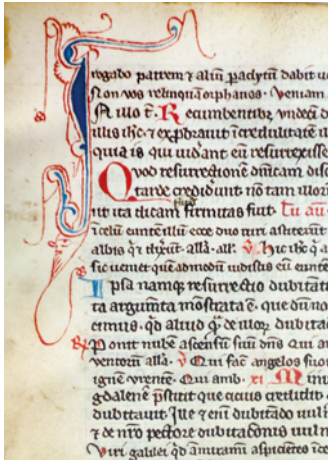 rogabo patrem & aliū paclytū dabit uo
Non vos relinquā orphanos. Veniam
In illo t̄. Recumbentibꝫ undecī d
illis ihc̄ & exprobrauit īcredulitatē il
quia is qui uidant eū resurrexisse
Quod resurrectionē dn̄icam disc
tarde crediderunt nō tam illorū
ut ita dicam firmitas fuit.
ī celū euntē illū ecce duo uiri astiterūt
albis qͥ & dixūt. all̄a. all̄. hic ihc̄ q a
sic ueniet quē admodū uidistis eū euntē
Ipsa namqꝫ resurrectio dubitātı
ta argumīta mōstrata ē. que dū no
cimus. qd̄ aliud qꝫ de illoꝝ dubita
Ponit nubē ascensū suū dn̄s Qui a
ventoꝝ all̄a. Qui fac̄ angelos suo
ignē vrentē. Qui amb. xi Min
gdalene p̄stitit que cicius credidit
dubitauit. Ille & enī dubitādo uuln
& de nr̄o pectore dubitacionis uuln
Viri galilei qd̄ amiramī aspiciētes ī ce